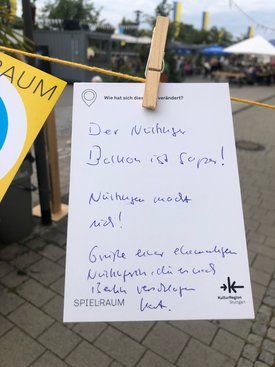 RAUM
Wie hat sich dies verändert?
Der Nürtinger
Balkon ist super!
Nürtingen macht
sich!
Grüße einer ehemaligen
Nürtingerin, die es nach
Berlin verschlagen
hat.
SPIELRAUM
KulturRegion
Stuttgart